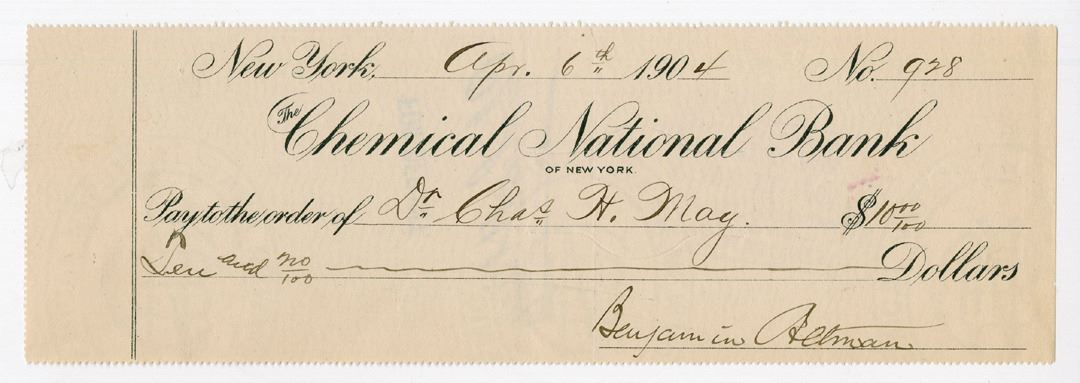 New York, Apr. 6th 1904 No. 928
The Chemical National Bank
OF NEW YORK.
Pay to the order of Dr. Chas. H. May. $10 00/100
Ten and no/100 Dollars
Benjamin Altman